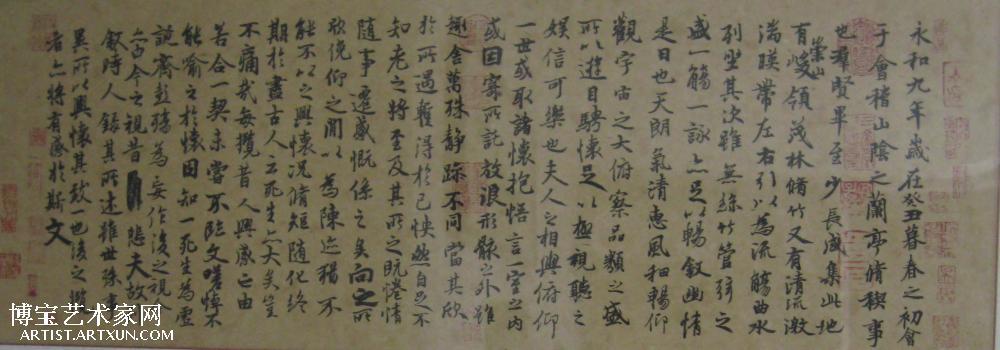 永和九年歲在癸丑暮春之初會
于會稽山陰之蘭亭脩稧事
也羣賢畢至少長咸集此地
有崇山峻領茂林脩竹又有清流激
湍暎帶左右引以為流觴曲水
列坐其次雖無絲竹管弦之
盛一觴一詠亦足以暢敘幽情
是日也天朗氣清惠風和暢仰
觀宇宙之大俯察品類之盛
所以遊目騁懷足以極視聽之
娛信可樂也夫人之相與俯仰
一世或取諸懷抱悟言一室之內
或因寄所託放浪形骸之外雖
趣舍萬殊靜躁不同當其欣
於所遇蹔得於己怏然自足不
知老之將至及其所之既惓情
隨事遷感慨係之矣向之所
欣俛仰之閒以為陳迹猶不
能不以之興懷況脩短隨化終
期於盡古人云死生亦大矣豈
不痛哉每攬昔人興感之由
若合一契未嘗不臨文嗟悼不
能喻之於懷固知一死生為虛
誕齊彭殤為妄作後之視
亦由今之視昔悲夫故
敘時人錄其所述雖世殊
異所以興懷其致一也後之
者亦將有感於斯文
博宝艺术家网
ARTIST.ARTXUN.COM